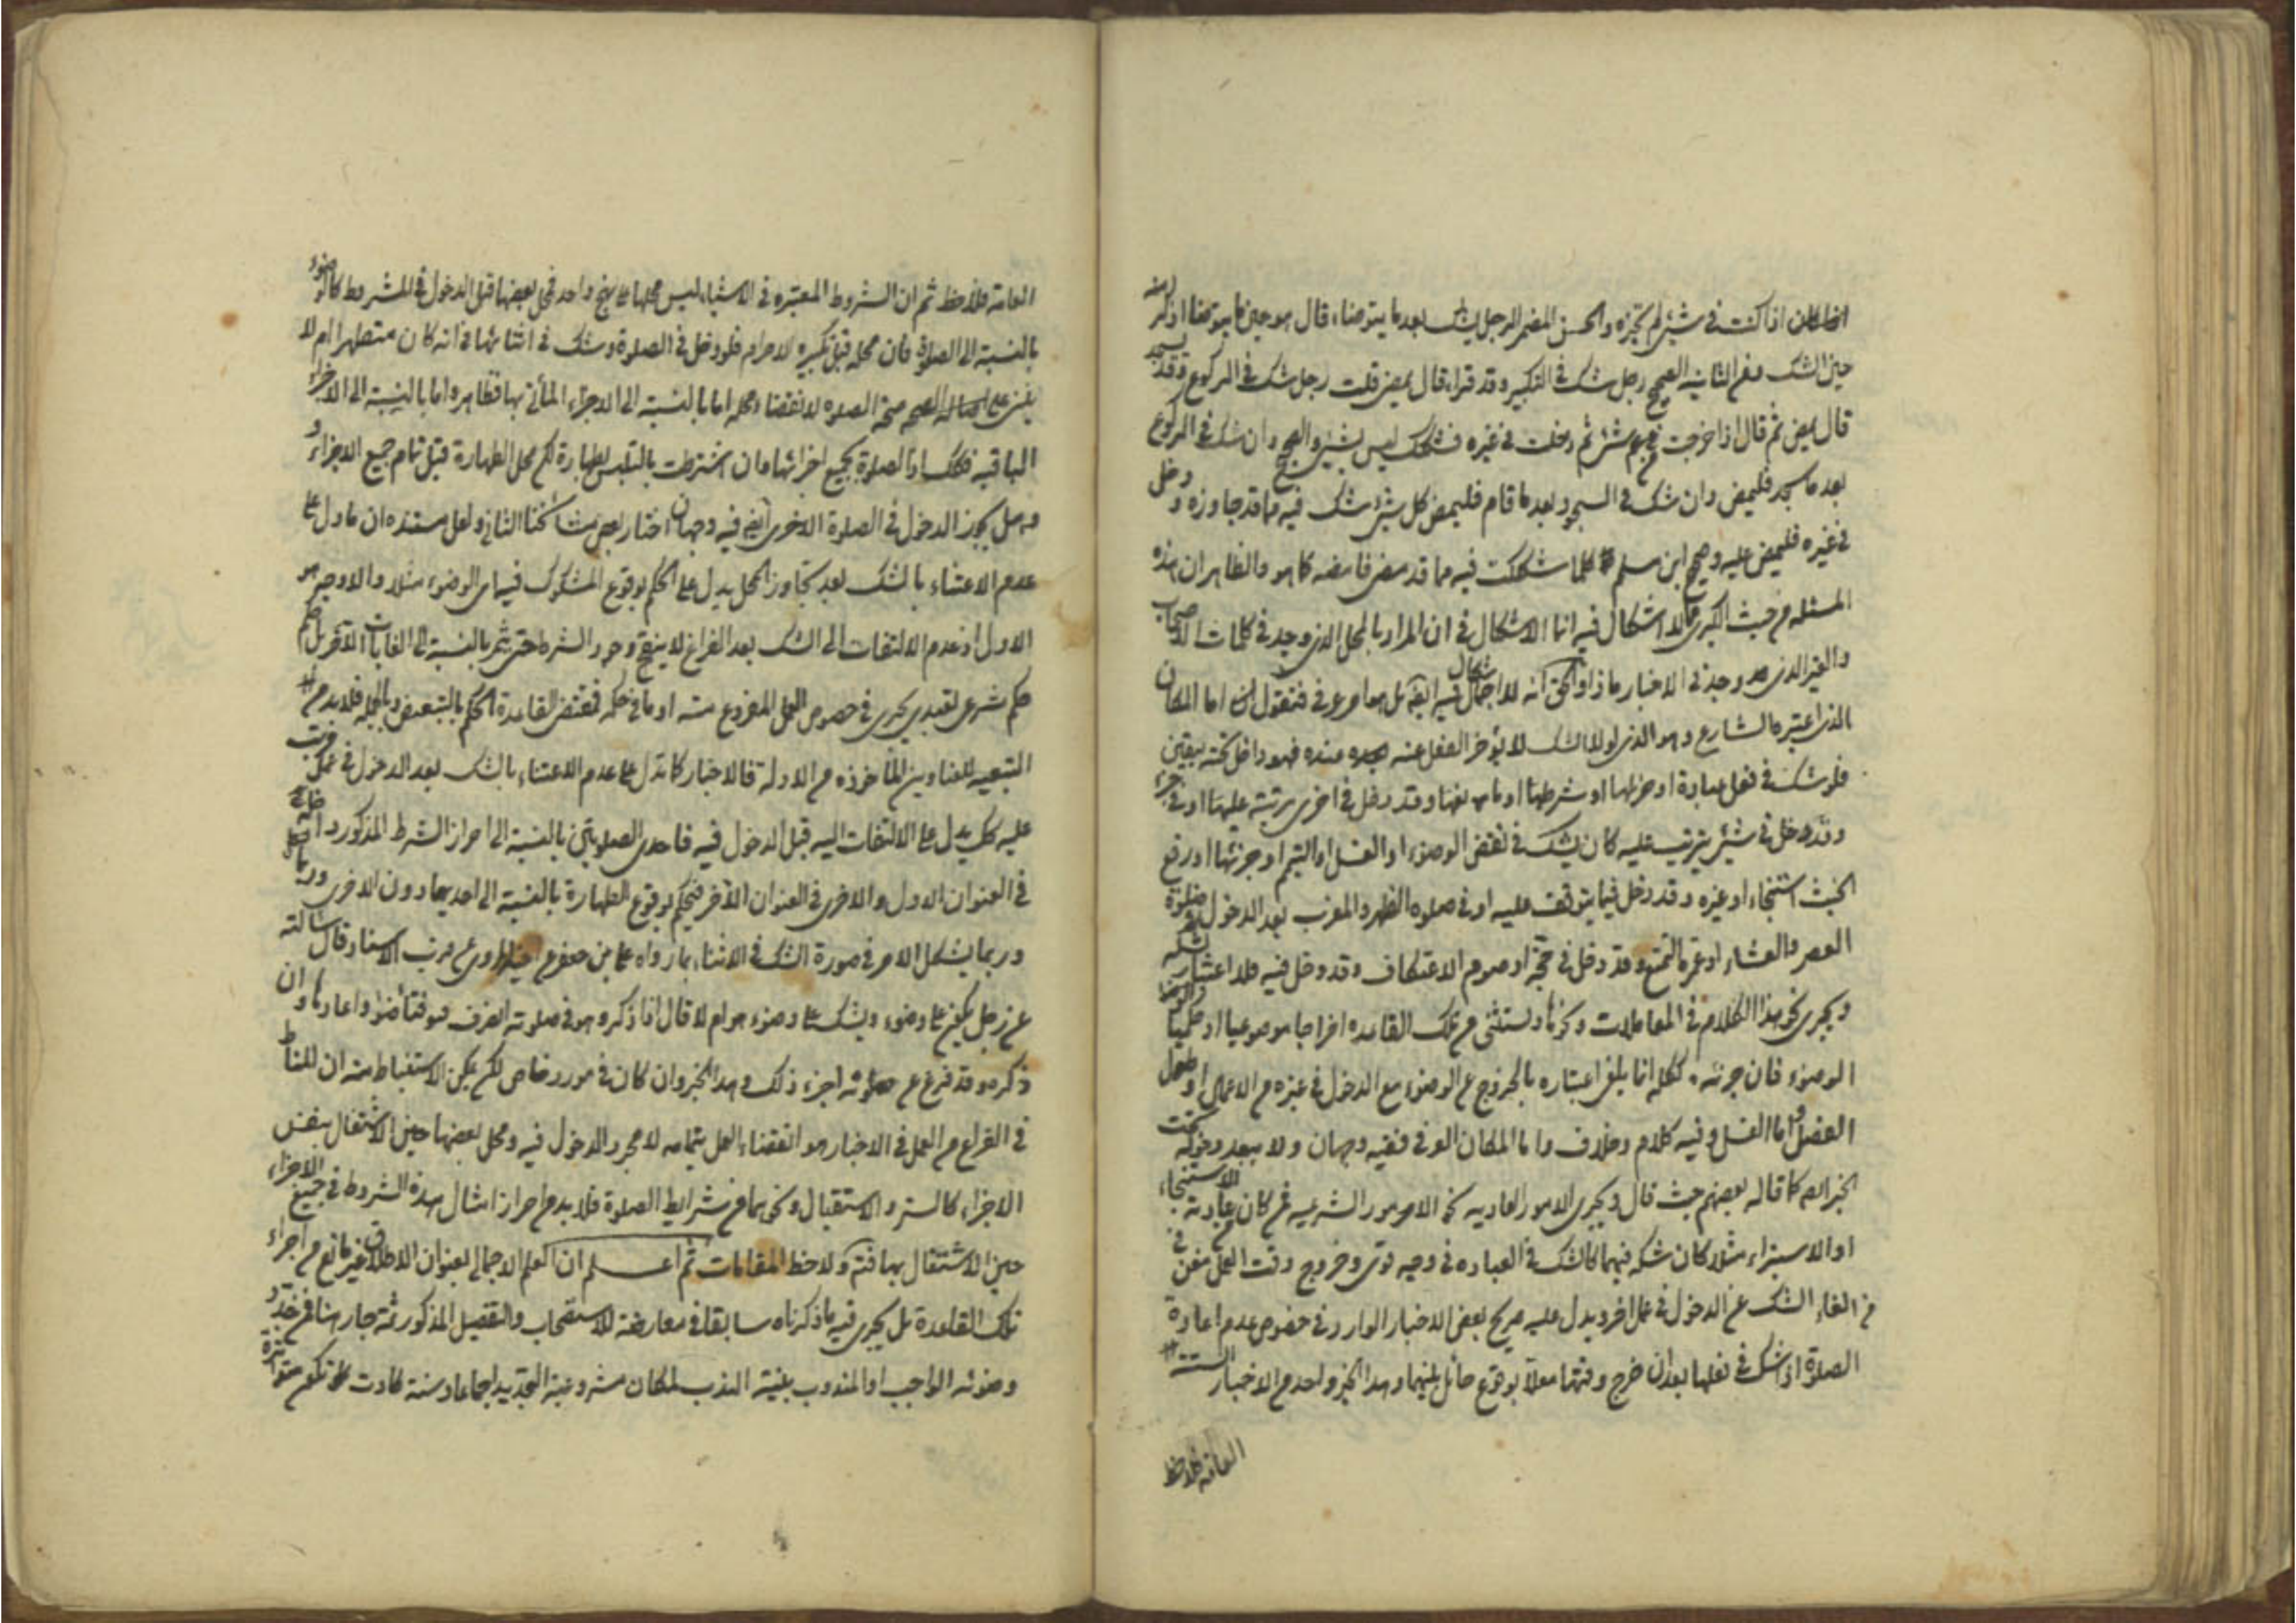 اذا كنت في شيء لم تجزه والحسن المضمر الرجل يشك بعد ما يتوضاء قال هو حين ما يتوضا اذكر منه
حين الشك وفي الثانية الصحيح رجل شك في التكبير وقد قراء قال يمضي قلت رجل شك في الركوع وقد سجد
قال يمضي ثم قال اذا خرجت من شيء ثم دخلت في غيره فشكك ليس بشيء والصحيح وان شك في الركوع
بعد ما سجد فليمض وان شك في السجود بعد ما قام فليمض كل شيء شك فيه مما قد جاوزه ودخل
في غيره فليمض عليه وصحيح ابن مسلم كلما شككت فيه مما قد مضى فامضه كما هو والظاهر ان هذه
المسئلة من حيث الكبرى مما لا اشكال فيه انما الاشكال في ان المراد بالمحل الذي وجد في كلمات الاصحاب
والغير الذي وجد في الاخبار ماذا والحق انه لا اشكال فيه بل هما معروف فنقول اما المكان
الذي اعتبره الشارع وهو الذي لولا الشك لا يؤخر الفعل عنه عنده فهو داخل تحته بيقين
فلو شك في فعل عبادة او جزئها او شرطها وقد دخل في اخرى مرتبة عليها او في جزء
وقد دخل في شيء يترتب عليه كان يشك في نقض الوضوء او الغسل او التيمم او جزئها او رفع
الخبث استنجاء او غيره وقد دخل فيما يتوقف عليه او في صلوة الظهر والمغرب بعد الدخول في صلوة
العصر والعشاء او عمرة التمتع وقد دخل في حجة او صوم الاعتكاف وقد دخل فيه فلا اعتبار بشكه
ويجري نحو هذا الكلام في المعاملات ونستثنى من تلك القاعدة اخراجا موضوعيا او حكميا
الوضوء فان جزئه انما يلغى اعتباره بالخروج عن الوضوء مع الدخول في غيره من الاعمال او طول
الفصل واما الغسل وفيه كلام وخلاف واما المكان العرفي ففيه وجهان ولا يبعد دخوله تحت
الخبر كما قاله بعضهم حيث قال ويجري الامور العادية نحو الامور الشرعية فمن كان عادته الاستنجاء
او الاستبراء مثلا كان شكه فيهما كالشك في العبادة في وجه قوي وخروج وقت العمل مغن
في الغاء الشك عن الدخول في عمل اخر ويدل عليه صريح بعض الاخبار الوارد في خصوص عدم اعادة
الصلوة اذا شك في فعلها بعد ان خرج وقتها معللا بوقوع حائل بينهما وهذا الخبر واحد من الاخبار الستة
العامة فلاحظ
العامة فلاحظ ثم ان الشروط المعتبرة في الاشياء ليس محلها على نهج واحد فمحل بعضها قبل الدخول في المشروط كالوضوء
بالنسبة الى الصلوة فان محله قبل تكبيرة الاحرام فلو دخل في الصلوة وشك في اثنائها في انه كان متطهرا ام لا
يبني على صحة الصلوة لانقضاء محله اما بالنسبة الى الاجزاء المأتي بها فظاهر واما بالنسبة الى الاجزاء
الباقية فكك اذ الصلوة بجميع اجزائها وان اشترطت بالتلبس بطهارة لكن محل الطهارة قبل تمام جميع الاجزاء
وهل يجوز الدخول في الصلوة الاخرى فيه وجهان اختار بعض مشائخنا الثاني ولعل مستنده ان ما دل على
عدم الاعتناء بالشك بعد تجاوز المحل يدل على الحكم بوقوع المشكوك فيه اي الوضوء مثلا والاوجه هو
الاول اذ عدم الالتفات الى الشك بعد الفراغ لا ينتج وجود الشرط حتى يثمر بالنسبة الى الغايات الاخر بل
حكم شرعي تعبدي يجري في خصوص العمل المفروغ منه او ما في حكمه فمقتضى القاعدة الحكم بالتبعيض وبالجملة فلابد من
التبعية للعناوين المأخوذة من الادلة فالاخبار كما تدل على عدم الاعتناء بالشك بعد الدخول في عمل مرتب
عليه كك يدل على الالتفات اليه قبل الدخول فيه فاحدى الصلوتين بالنسبة الى احراز الشرط المذكور داخلة
في العنوان الاول والاخرى في العنوان الاخر فنحكم بوقوع الطهارة بالنسبة الى احديهما دون الاخرى
وربما يشكل الامر في صورة الشك في الاثناء بما رواه علي بن جعفر عن اخيه المروي عن قرب الاسناد قال سالته
عن رجل يكون على وضوء ويشك على وضوء هو ام لا قال اذا ذكر وهو في صلوته انصرف فتوضأ واعادها وان
ذكر وقد فرغ من صلوته اجزء ذلك وهذا الخبر وان كان في مورد خاص لكن يمكن الاستنباط منه ان المناط
في الفراغ من العمل في الاخبار هو انقضاء العمل بتمامه لا مجرد الدخول فيه ومحل بعضها حين الاشتغال بنفس
الاجزاء كالستر والاستقبال ونحوهما من شرايط الصلوة فلابد من احراز امثال هذه الشروط في جميع الاجزاء
حين الاشتغال بها فتم ولاحظ المقامات ثم اعلم ان العلم الاجمالي بعنوان الاطلاق غير مانع من اجراء
تلك القاعدة بل يجري فيه ما ذكرناه سابقا في معارضة الاستصحاب والتفصيل المذكور ثمة جار هنا فمن جدد
وضوئه الواجب او المندوب بنية الندب لمكان مشروعية التجديد اجماعا وسنة كادت تكون متواترة